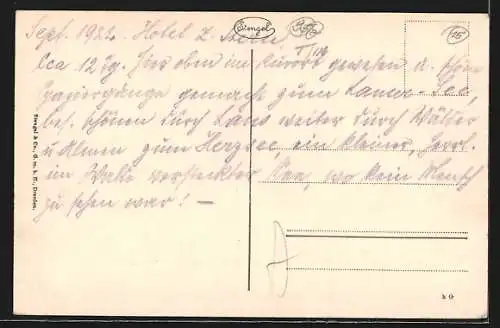 Sept. 1922. Hotel z. Stern
ca 12 Tg. hier oben im Kurort gewesen u. schöne
Spaziergänge gemacht zum Lanser-See,
bes. schönen durch Lans weiter durch Wälder
u. Almen zum Herzsee, ein kleiner, herrl.
im Walde versteckter See, wo kein Mensch
zu sehen war! —
Stengel
15
Stengel & Co., G. m. b. H., Dresden.